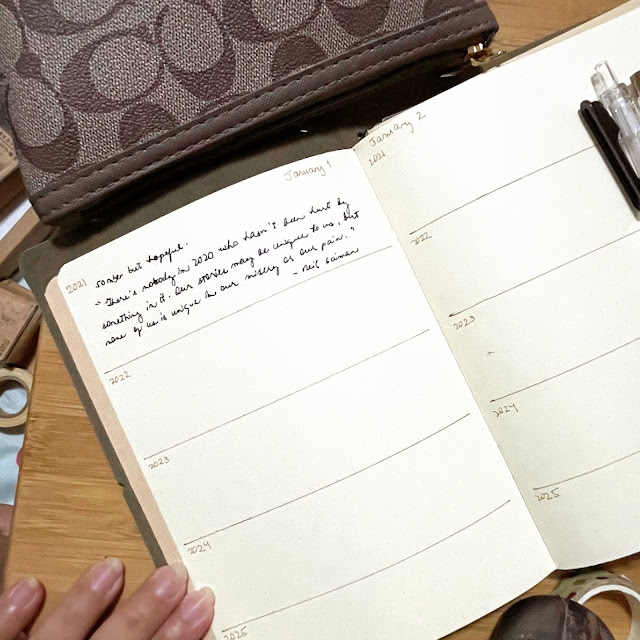 January 1
2021
somber but hopeful.
"There's nobody in 2020 who hasn't been hurt by
something in it. Our stories may be unique to us, but
none of us is unique in our misery or our pain."
- Neil Gaiman
2022
2023
2024
2025
January 2
2021
2022
2023
2024
2025